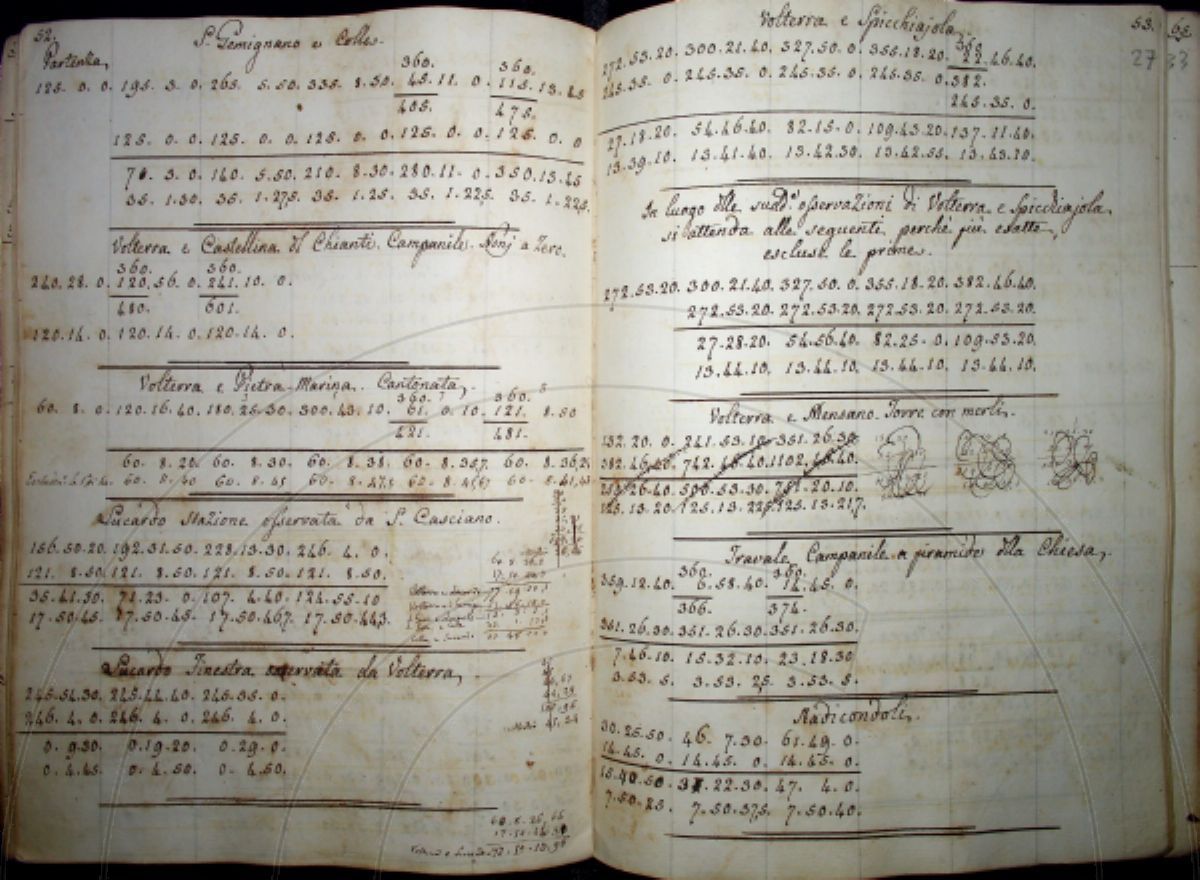 52.
S. Gemignano e Colle.
Partenza,
360. 360.
125. 0. 0. 195. 3. 0. 265. 5.50. 335. 8.30. 45. 11. 0. 115. 13.45
405. 475.
125. 0. 0. 125. 0. 0. 125. 0. 0. 125. 0. 0. 125. 0. 0
70. 3. 0. 140. 5.50. 210. 8.30. 280. 11. 0. 350. 13.45
35. 1.30. 35. 1.275. 35. 1.25. 35. 1.225. 35. 1.225.
Volterra e Castellina del Chianti. Campanile. a Zero.
360. 360.
240. 28. 0. 120. 56. 0. 241. 10. 0.
480. 601.
120.14. 0. 120.14. 0. 120.14. 0.
Volterra e Pietra-Marina. Cantonata,
360. 360.
60. 8. 0. 120. 16. 40. 180. 25.30. 300. 43. 10. 61. 0. 10. 121. 8.50
421. 481.
60. 8.20. 60. 8.30. 60. 8.38. 60. 8.357. 60. 8.36,25
60. 8.40 60. 8.45 60. 8.475 60. 8.4567 60. 8.41,43
Lucardo Stazione osservata da S. Casciano.
156.50.20. 192.31.50. 228.13.30. 246. 4. 0.
121. 8.50. 121. 8.50. 121. 8.50. 121. 8.50.
35.41.30. 71.23. 0. 107. 4.40. 124.55.10
17.50.45. 17.50.45. 17.50.467. 17.50.443.
Lucardo Finestra osservata da Volterra,
245.54.30. 245.44.40. 245.35. 0.
246. 4. 0. 246. 4. 0. 246. 4. 0.
0. 9.30. 0.19.20. 0.29. 0.
0. 4.45. 0. 4.50. 0. 4.50.
53.
27
Volterra e Spicchiajola,
360
272.53.20. 300.21.40. 327.50. 0. 355.18.20. 22.46.40.
245.35. 0. 245.35. 0. 245.35. 0. 245.35. 0. 382.
245.35. 0.
27.18.20. 54.46.40. 82.15. 0. 109.43.20. 137.11.40.
13.39.10. 13.41.40. 13.42.30. 13.42.55. 13.43.10.
In luogo delle sudd.e osservazioni di Volterra e Spicchiajola,
si attenda alle seguenti perche piu esatte,
escluse le prime.
272.53.20. 300.21.40. 327.50. 0. 355.18.20. 382.46.40.
272.53.20. 272.53.20. 272.53.20. 272.53.20.
27.28.20. 54.56.40. 82.25. 0. 109.53.20.
13.44.10. 13.44.10. 13.44.10. 13.44.10.
Volterra e Mensano. Torre con merli.
132.20. 0. 241.53.10. 351.26.30
382.46.40. 742.46.40. 1102.46.40.
250.26.40. 500.53.30. 751.20.10.
125.13.20. 125.13.225. 125.13.217.
Travale Campanile a piramide della Chiesa,
360. 360.
359.12.40. 6.58.40. 14.45. 0.
366. 374.
351.26.30. 351.26.30. 351.26.30.
7.46.10. 15.32.10. 23.18.30
3.53. 5. 3.53. 25. 3.53. 5.
Radicondoli.
30.25.50. 46. 7.30. 61.49. 0.
14.45. 0. 14.45. 0. 14.45. 0.
15.40.50. 31.22.30. 47. 4. 0.
7.50.25. 7.50.375. 7.50.40.